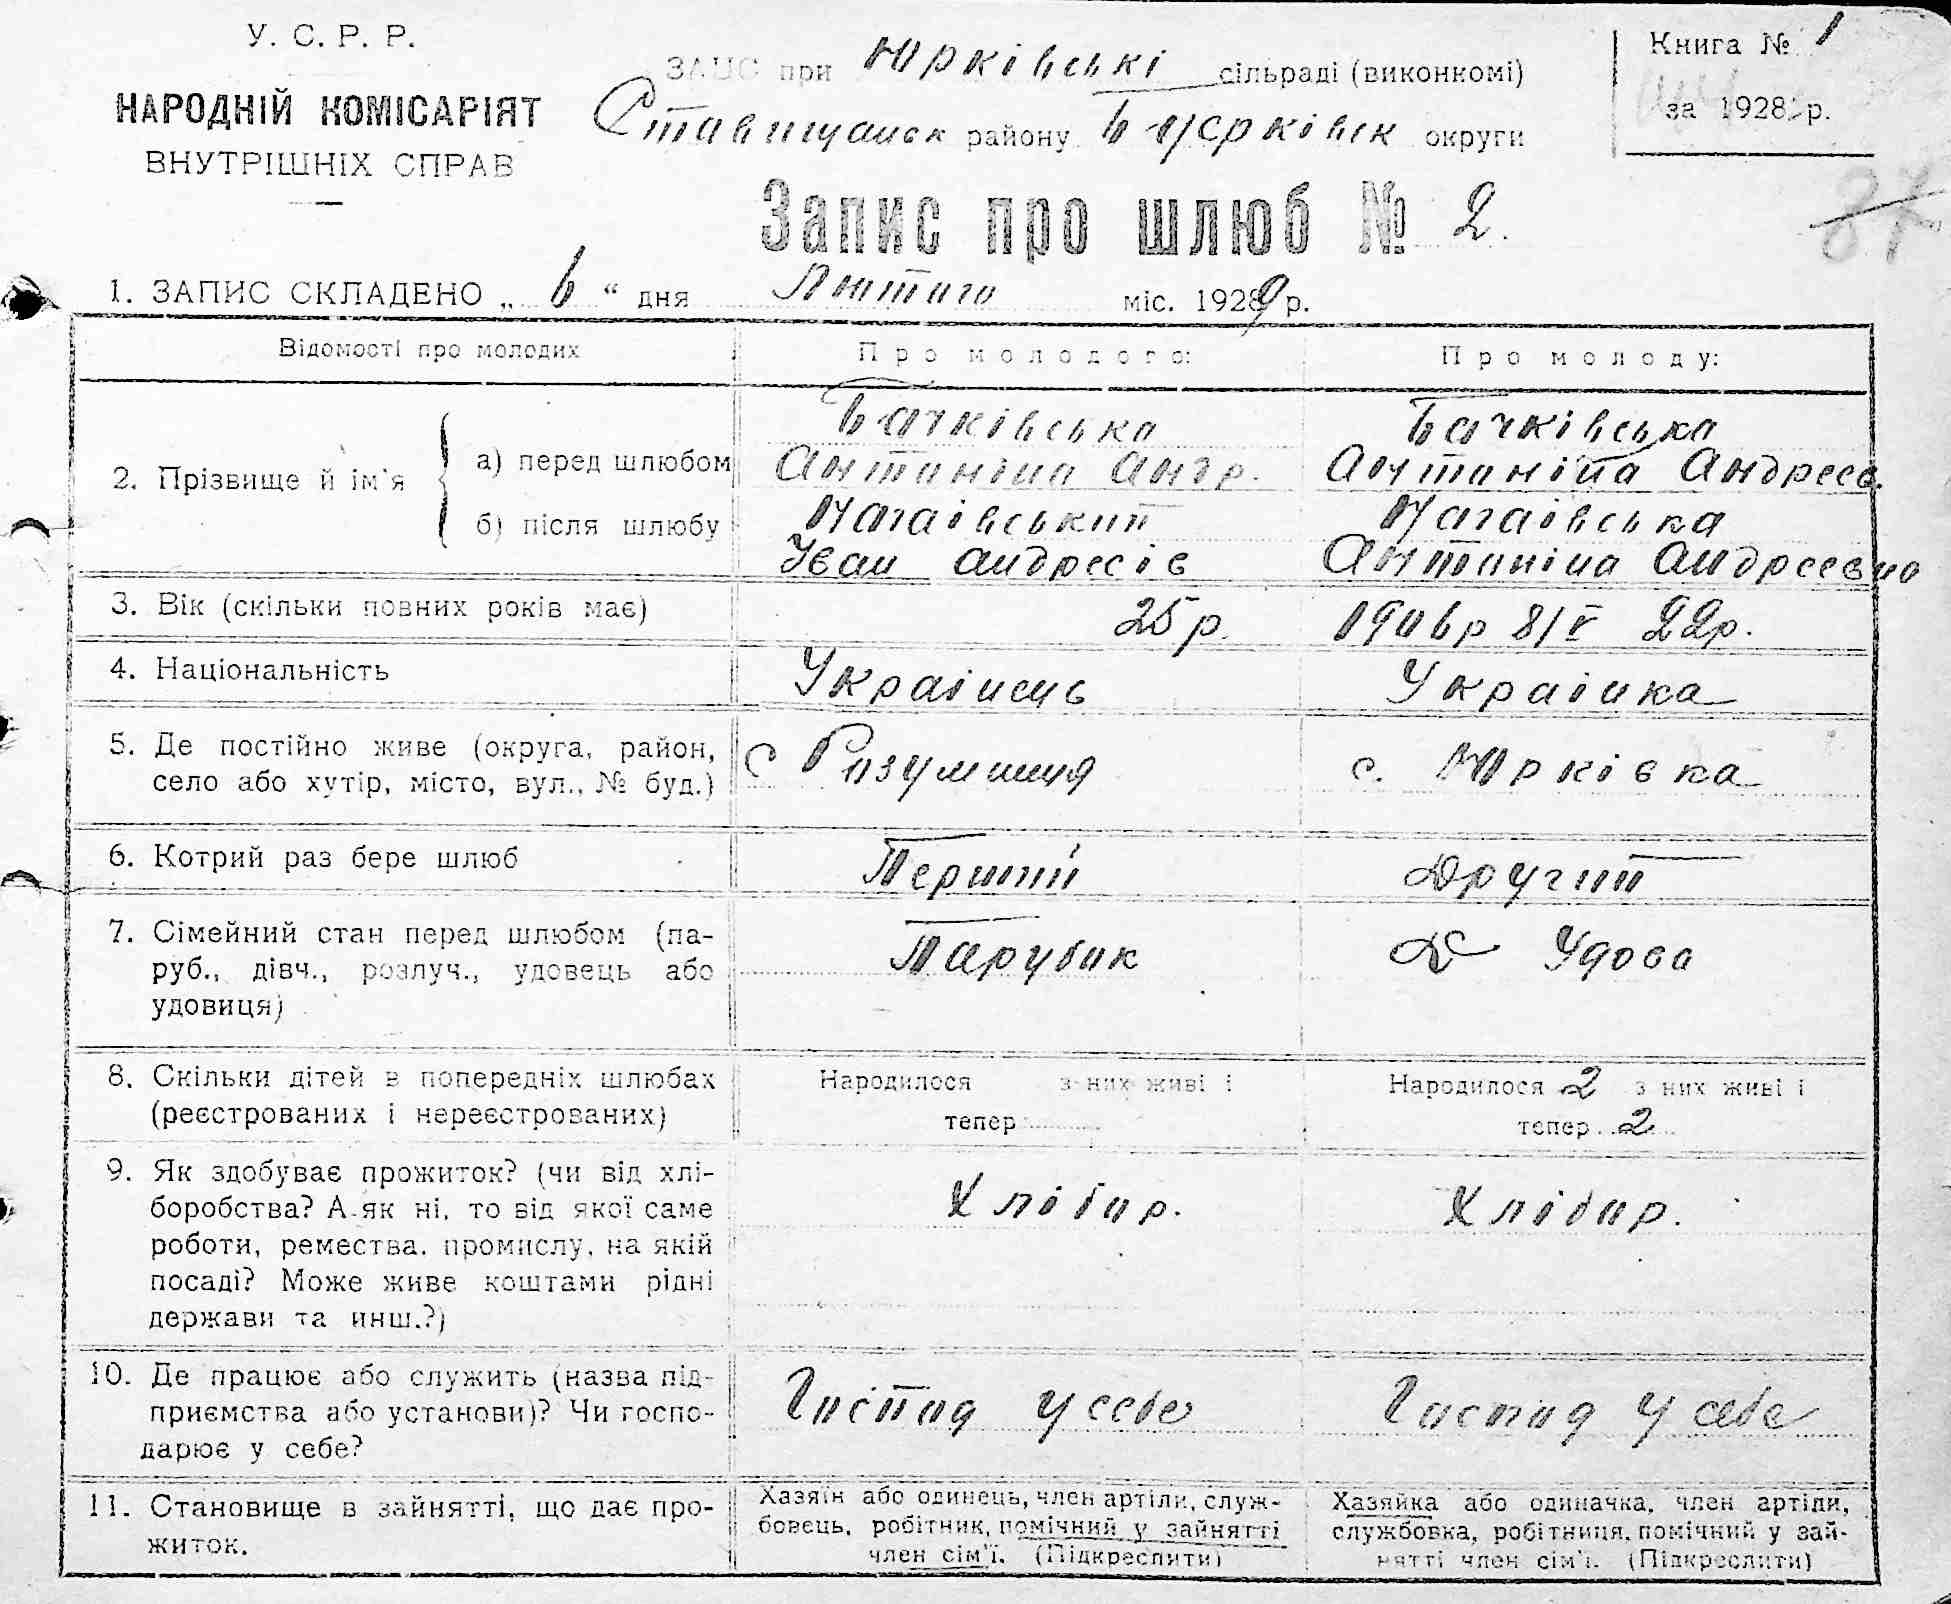 У. С. Р. Р.
НАРОДНІЙ КОМІСАРІЯТ
ВНУТРІШНІХ СПРАВ
ЗАГС при Юрківські сільраді (виконкомі)
Ставищанськ району Б Церківськ округи
Книга № 1
за 1928 р.
87
Запис про шлюб № 2.
1. ЗАПИС СКЛАДЕНО „ 6 “ дня Лютого міс. 1929 р.
Відомості про молодих
Про молодого:
Про молоду:
2. Прізвище й ім'я
а) перед шлюбом
Бачківська
Антоніна Андр.
Бачківська
Антоніна Андреєв.
б) після шлюбу
Нагаівський
Іван Андреєів
Нагаівська
Антоніна Андреєвна
3. Вік (скільки повних років має)
25 р.
1906 р 8/V 22 р.
4. Національність
Украінець
Украінка
5. Де постійно живе (округа, район,
село або хутір, місто, вул., № буд.)
с Розумниця
с. Юрківка
6. Котрий раз бере шлюб
Перший
Другий
7. Сімейний стан перед шлюбом (па-
руб., дівч., розлуч., удовець або
удовиця)
Парубок
Удова
8. Скільки дітей в попередніх шлюбах
(реєстрованих і нереєстрованих)
Народилося з них живі і
тепер
Народилося 2 з них живі і
тепер 2
9. Як здобуває прожиток? (чи від хлі-
боробства? А як ні, то від якої саме
роботи, ремества, промислу, на якій
посаді? Може живе коштами рідні
держави та инш.?)
Хлібор.
Хлібор.
10. Де працює або служить (назва під-
приємства або установи)? Чи госпо-
дарює у себе?
Господ у себе
Господ у себе
11. Становище в зайнятті, що дає про-
житок.
Хазяїн або одинець, член артіли, служ-
бовець, робітник, помічний у зайнятті
член сім'ї. (Підкреслити)
Хазяйка або одиначка, член артіли,
службовка, робітниця, помічний у зай-
нятті член сім'ї. (Підкреслити)